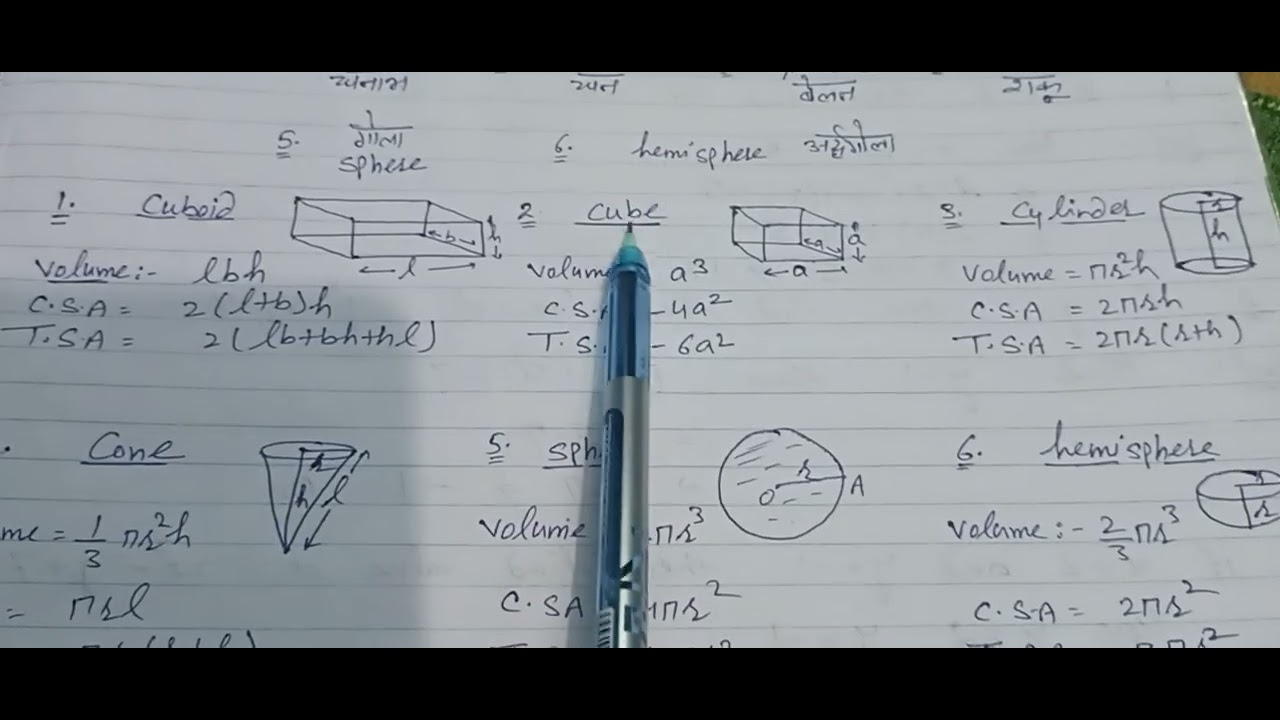 घनाभ घन बेलन शंकु
5. गोला 6. hemisphere अर्द्धगोला
sphere
1. Cuboid
b h
l
Volume:- lbh
C.S.A = 2(l+b)h
T.S.A = 2(lb+bh+hl)
2 Cube
a a
a
volum a³
C.S. - 4a²
T.S. - 6a²
3. Cylinder
r
h
Volume = πr²h
C.S.A = 2πrh
T.S.A = 2πr(r+h)
Cone
r
h l
me = 1/3 πr²h
= πrl
5. sph
r
O A
Volume πr³
C.SA πr²
6. hemisphere
r
r
Volume :- 2/3 πr³
C.S.A = 2πr²